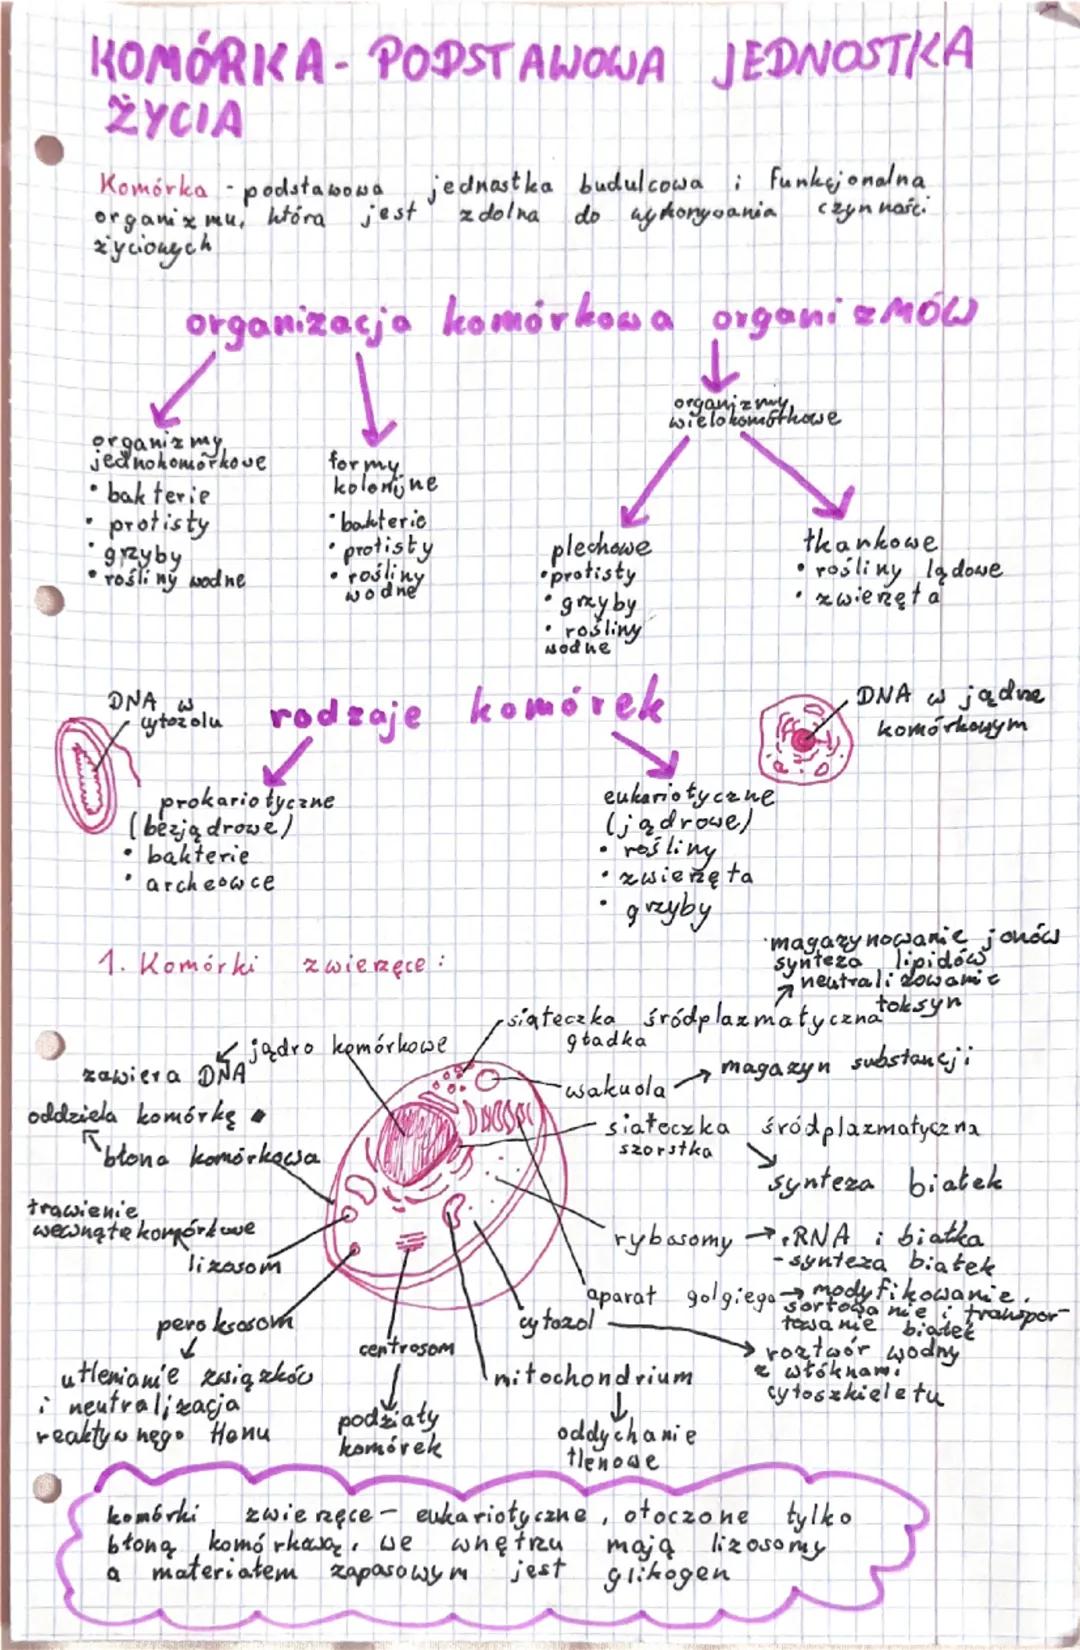 KOMÓRKA - PODSTAWOWA JEDNOSTKA
ŻYCIA
Komórka - podstawowa jednostka budulcowa i funkcjonalna
organizmu, która jest zdolna do wykonywania czynności
życiowych
organizacja komórkowa organizmów
organizmy
jednokomórkowe
• bakterie
• protisty
• grzyby
• rośliny wodne
formy
kolonijne
• bakterie
• protisty
• rośliny
wodne
organizmy
wielokomórkowe
plechowe
• protisty
• grzyby
• rośliny
wodne
tkankowe
• rośliny lądowe
• zwierzęta
rodzaje komórek
DNA w
cytozolu
prokariotyczne
(bezjądrowe)
• bakterie
• archeowce
DNA w jądrze
komórkowym
eukariotyczne
(jądrowe)
• rośliny
• zwierzęta
• grzyby
1. Komórki zwierzęce:
• magazynowanie jonów
synteza lipidów
neutralizowanie
toksyn
siateczka śródplazmatyczna
gładka
jądro komórkowe
zawiera DNA
wakuola → magazyn substancji
oddziela komórkę
błona komórkowa
siateczka śródplazmatyczna
szorstka
synteza białek
trawienie
wewnątrzkomórkowe
lizosom
rybosomy → rRNA i białka
- synteza białek
aparat golgiego → modyfikowanie,
sortowanie i transpor-
towanie białek
cytozol
roztwór wodny
z włóknami
cytoszkieletu
peroksosom
utlenianie związków
i neutralizacja
reaktywnego tlenu
centrosom
podziały
komórek
mitochondrium
oddychanie
tlenowe
komórki zwierzęce - eukariotyczne, otoczone tylko
błoną komórkową, we wnętrzu mają lizosomy
a materiałem zapasowym jest glikogen